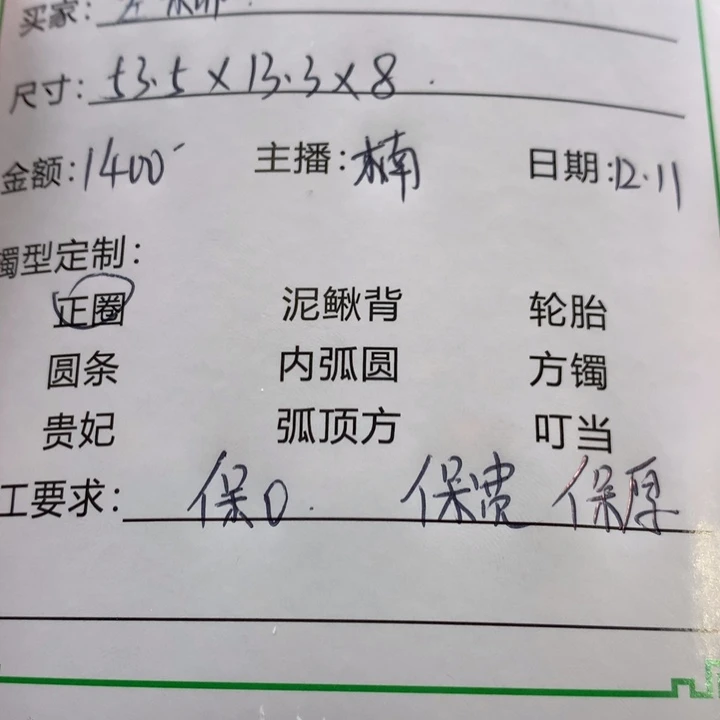 买家:
尺寸: 53.5×13.3×8.
金额: 1400 主播: 楠 日期: 12.11
镯型定制:
正圈 泥鳅背 轮胎
圆条 内弧圆 方镯
贵妃 弧顶方 叮当
工要求: 保0. 保宽 保厚